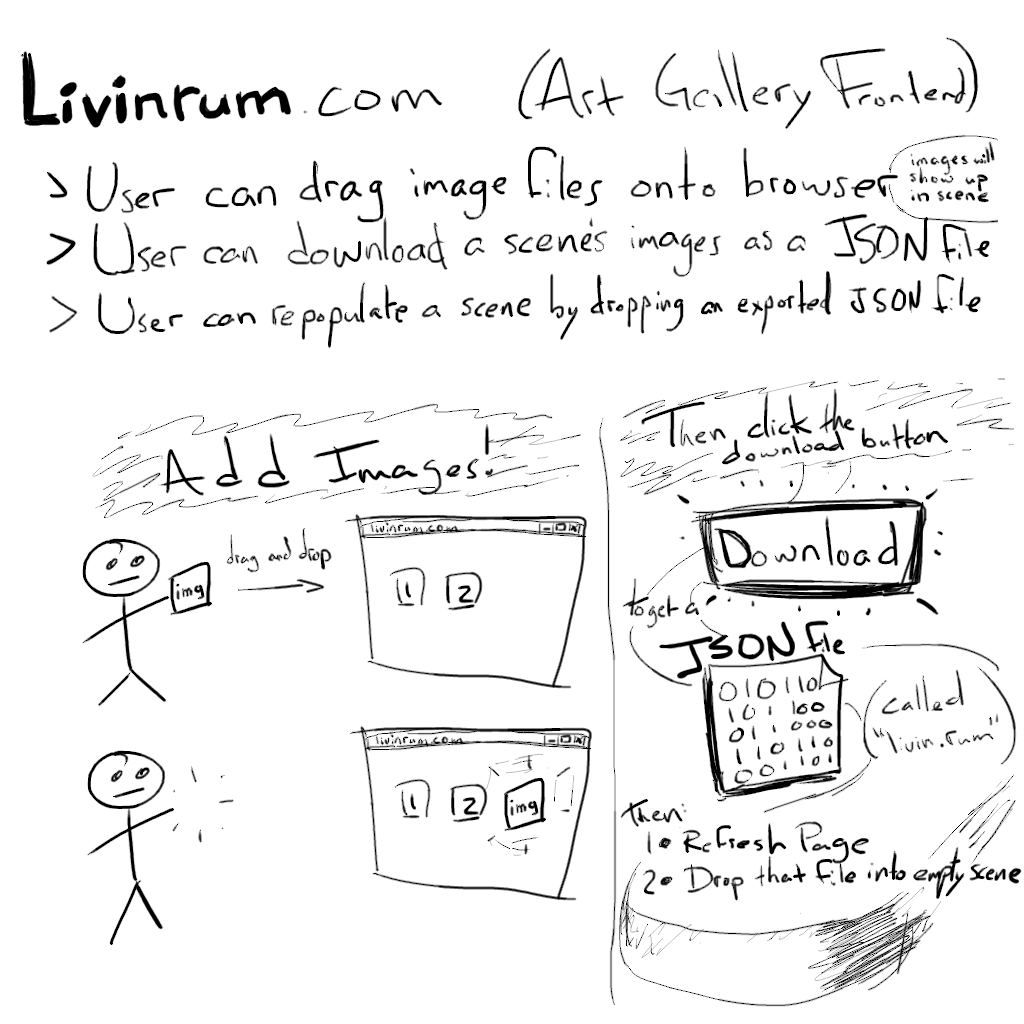 Livinrum.com (Art Gallery Frontend)
> User can drag image files onto browser
images will
show up
in scene
> User can download a scene's images as a JSON file
> User can repopulate a scene by dropping an exported JSON file
Add Images!
img
drag and drop
livinrum.com
1 2
livinrum.com
1 2 img
Then click the
download button
Download
to get a
JSON file
010110
101 100
011 000
110110
001101
called
"livin.rum"
then:
1. Refresh Page
2. Drop that file into empty scene